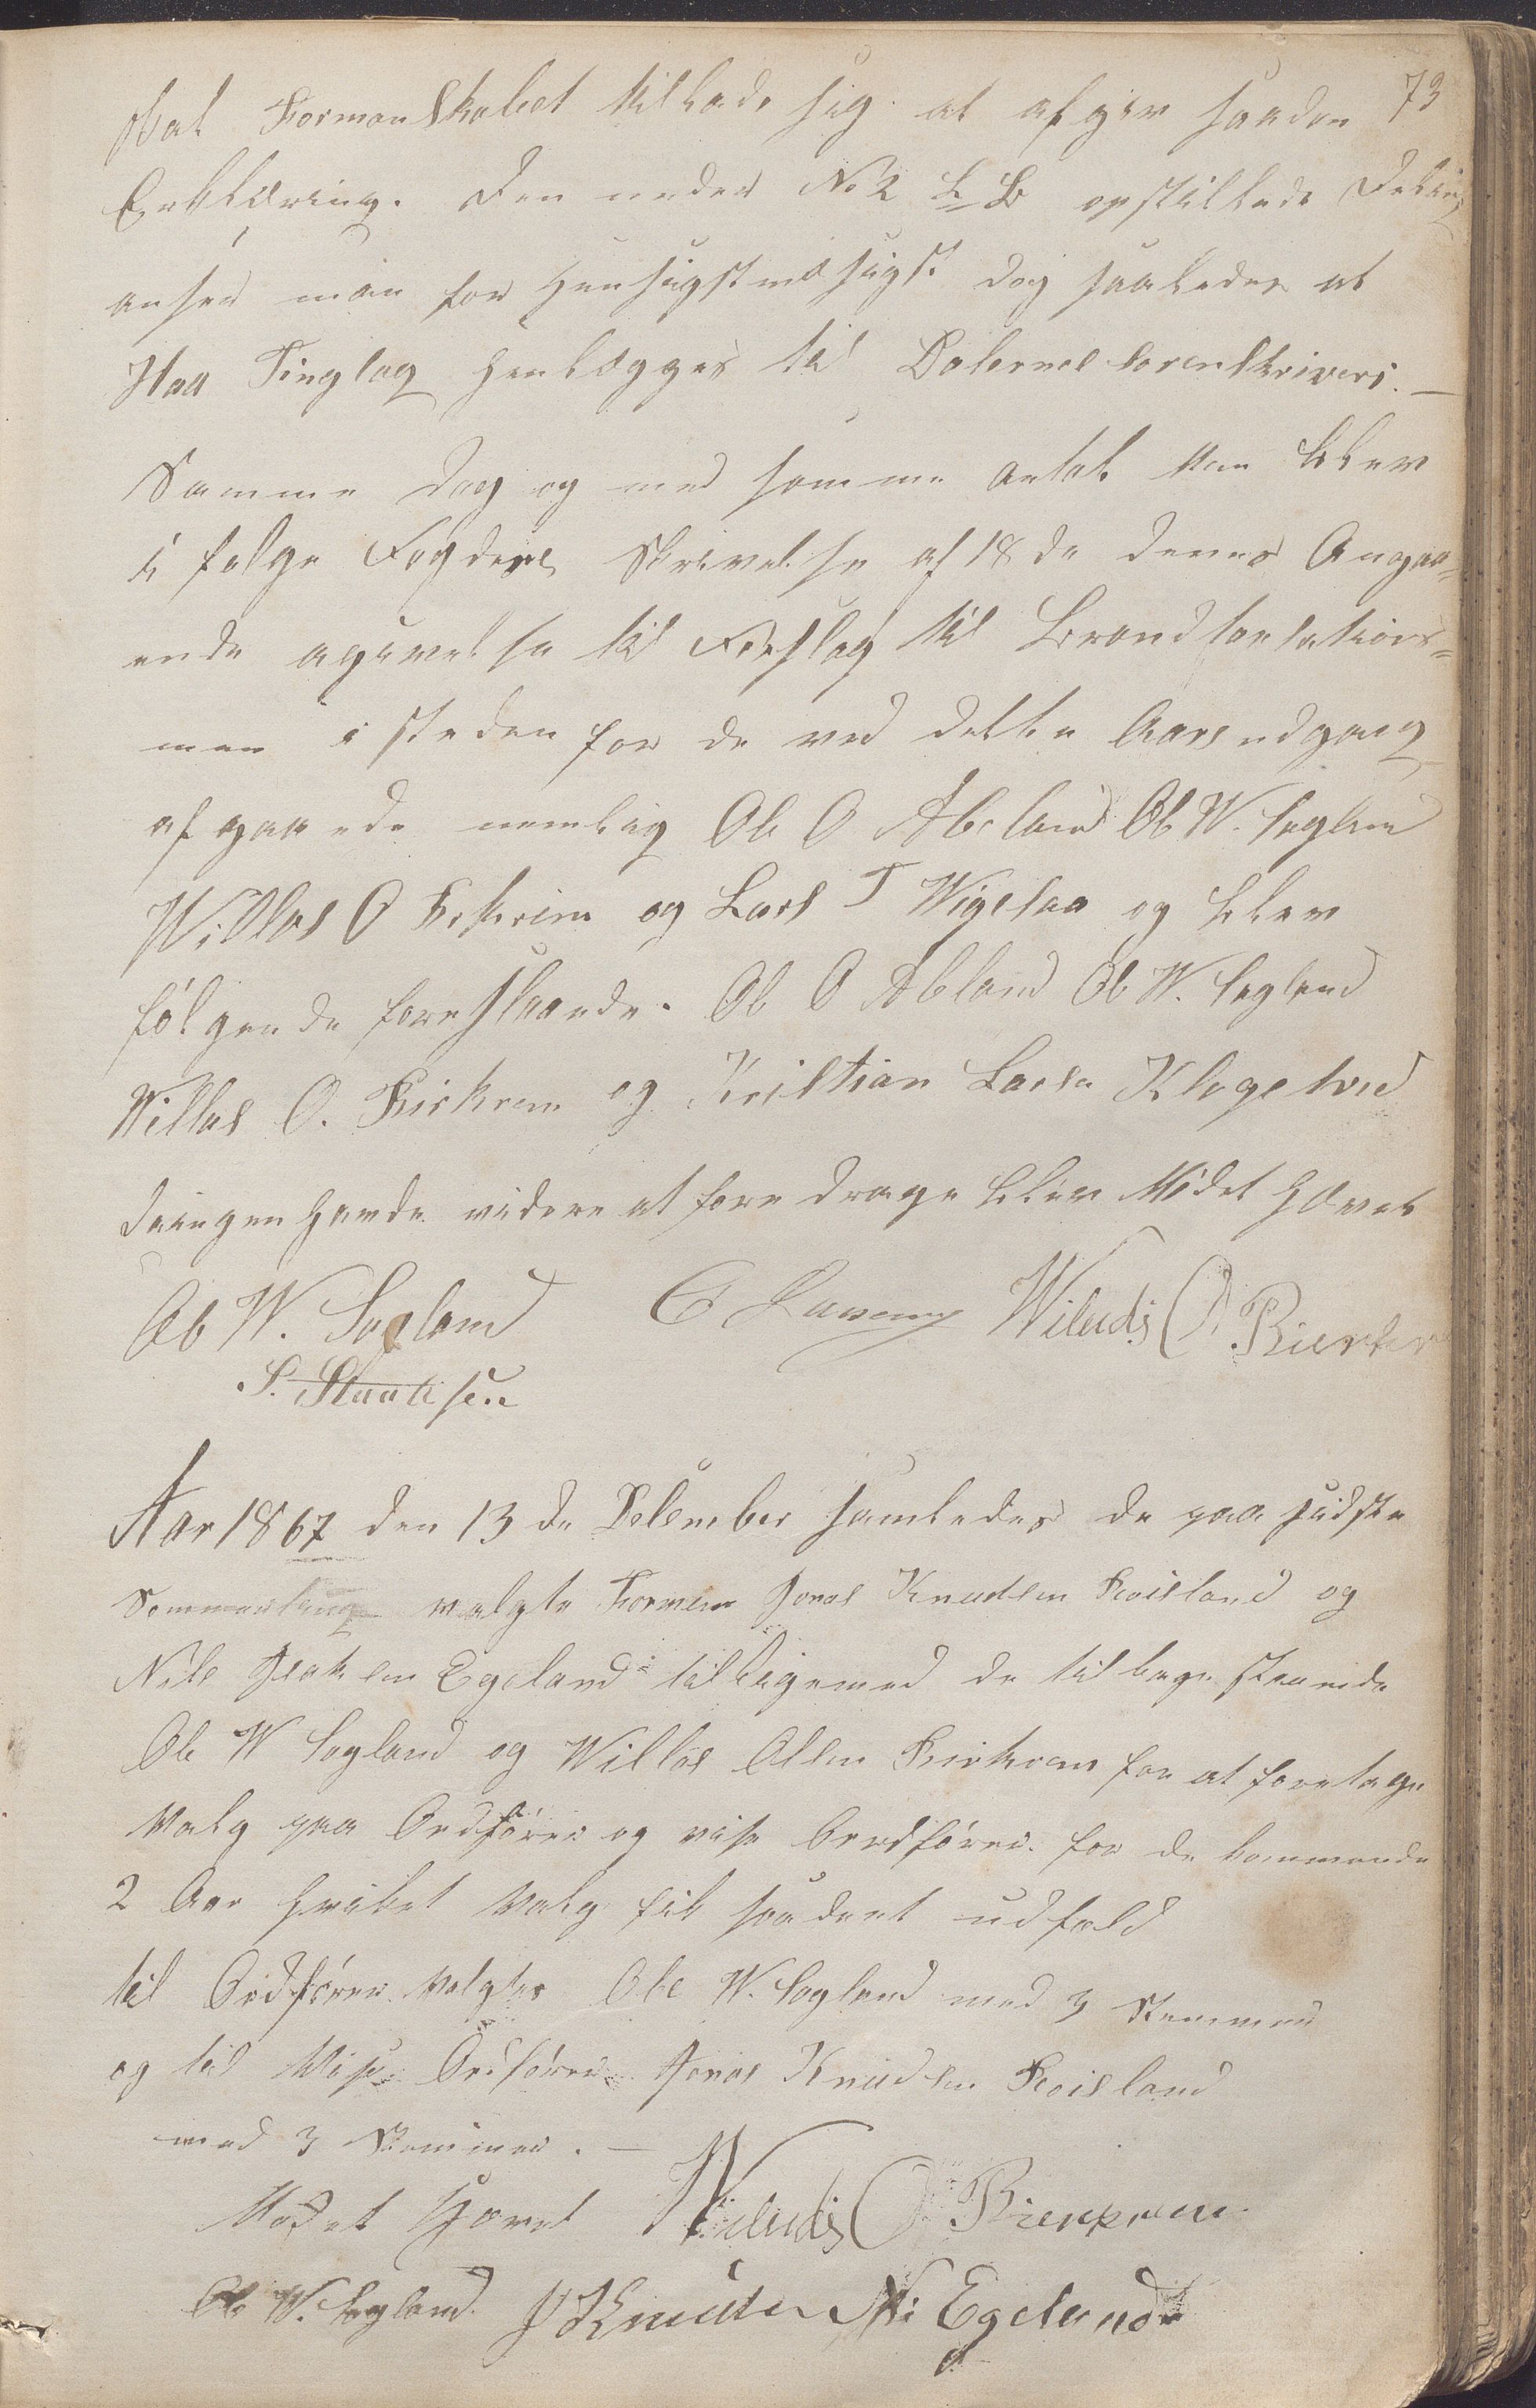 73
skal Formanskabet tillade sig at afgive saadan
Erklæring. Den under No 2 L B opstillede Deling
anser man for Hensigtmæsigst dog saaledes at
Haa Tinglag henlægges til Dalernes Sorenskriveri. —
Samme Dag og med samme antal Mæn blev
i følge Fogdens Skrivelse af 18de dennes Angaa=
ende agivelse til Forslag til Brandtaxtations=
mæn i steden for de ved dette Aars udgang
afgaaende nemlig Ole O Abeland Ole W. Segland
Willas O Birkrem og Lars T Wigesaa og blev
følgende foreslaaede. Ole O Abland Ole W. Segland
Willas O. Birkrem og Kristian Larsen Klogetved
Da ingen havde videre at foredrage blev Mødet hævet
Ole W. Sagland Wiludis O. Bierkr
Aar 1867 den 13de Desember samledes de paa sidste
Sommerting valgte Formæn Jonas Knudsen Røisland og
Nils Isaksen Egeland tilligemed de tilbagestaaende
Ole W Sagland og Willas Olsen Birkrem for at foretage
Valg paa Ordfører og vise Ordfører for de kommende
2 Aar hvilket Valg fik saadant udfald
til Ordfører valgtes Ole W. Sagland med 3 Stemmer
og til Vise Ordfører Jonas Knudsen Røisland
med 3 Stemmer. —
Mødet hævet Wiludis O Bierkrem
Ole W. Segland J Knudsen Ni Egelund